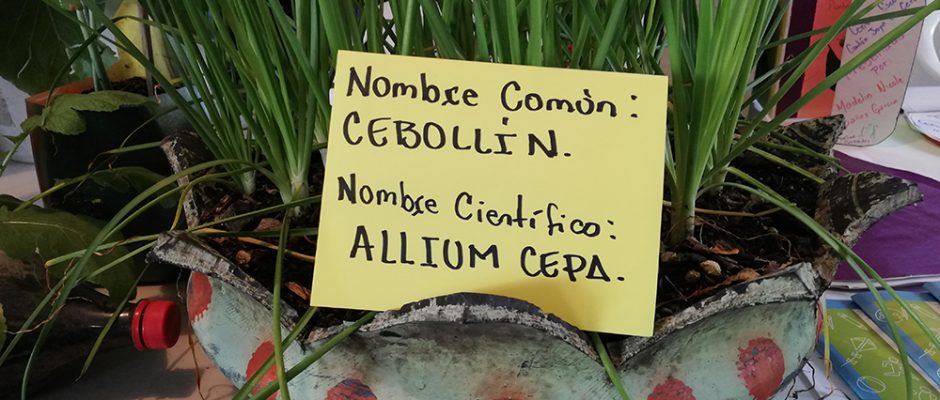 Nombre Común:
CEBOLLÍN.
Nombre Científico:
ALLIUM CEPA.
Por:
Madelin Nicole